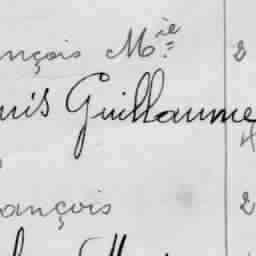 nçois Mie 2
uis Guillaume
4
ançois 2